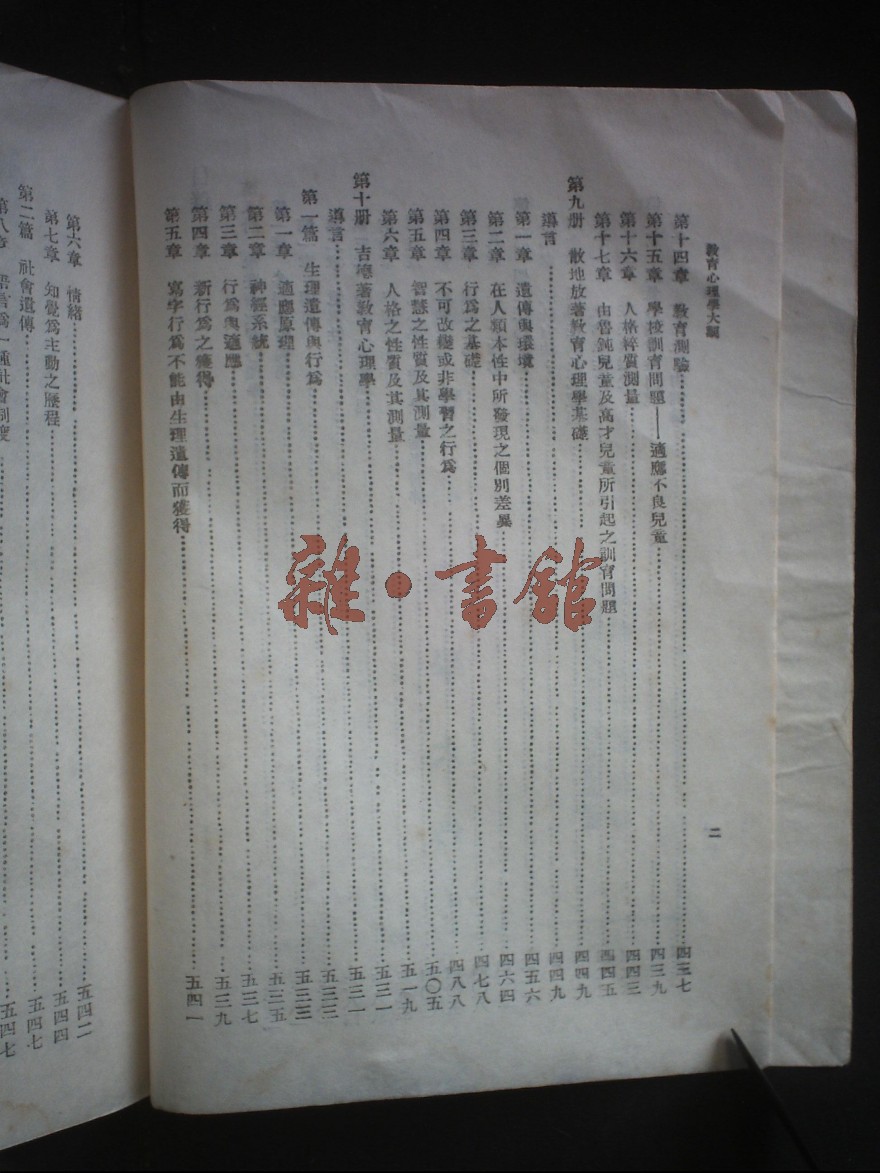 教育心理學大綱
二
第十四章 教育測驗 四三七
第十五章 學校訓育問題——適應不良兒童 四三九
第十六章 人格特質測量 四四三
第十七章 由魯鈍兒童及高才兒童所引起之訓育問題 四四五
第九册 散地放著教育心理學基礎 四四九
導言 四四九
第一章 遺傳與環境 四五六
第二章 在人類本性中所發現之個別差異 四六四
第三章 行為之基礎 四七八
第四章 不可改變或非學習之行為 四八八
第五章 智慧之性質及其測量 五〇五
第六章 人格之性質及其測量 五一九
第十册 吉德著教育心理學 五三一
導言 五三一
第一篇 生理遺傳與行為 五三三
第一章 適應原理 五三三
第二章 神經系統 五三五
第三章 行為與適應 五三七
第四章 新行為之獲得 五三九
第五章 寫字行為不能由生理遺傳而獲得 五四一
第六章 情緒 五四二
第七章 知覺為主動之歷程 五四四
第二篇 社會遺傳 五四七
第八章 語言為一種社會制度 五四七
雜·書館